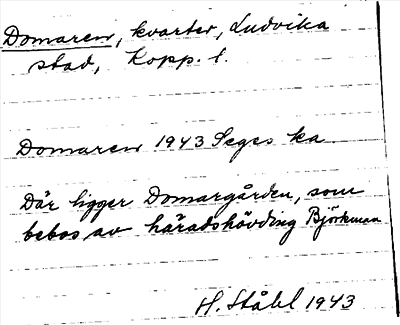 Domaren, kvarter, Ludvika
stad, Kopp. l.
Domaren 1943 Seges ka
Där ligger Domargården, som
bebos av häradshövding Björkman
H. Ståhl 1943